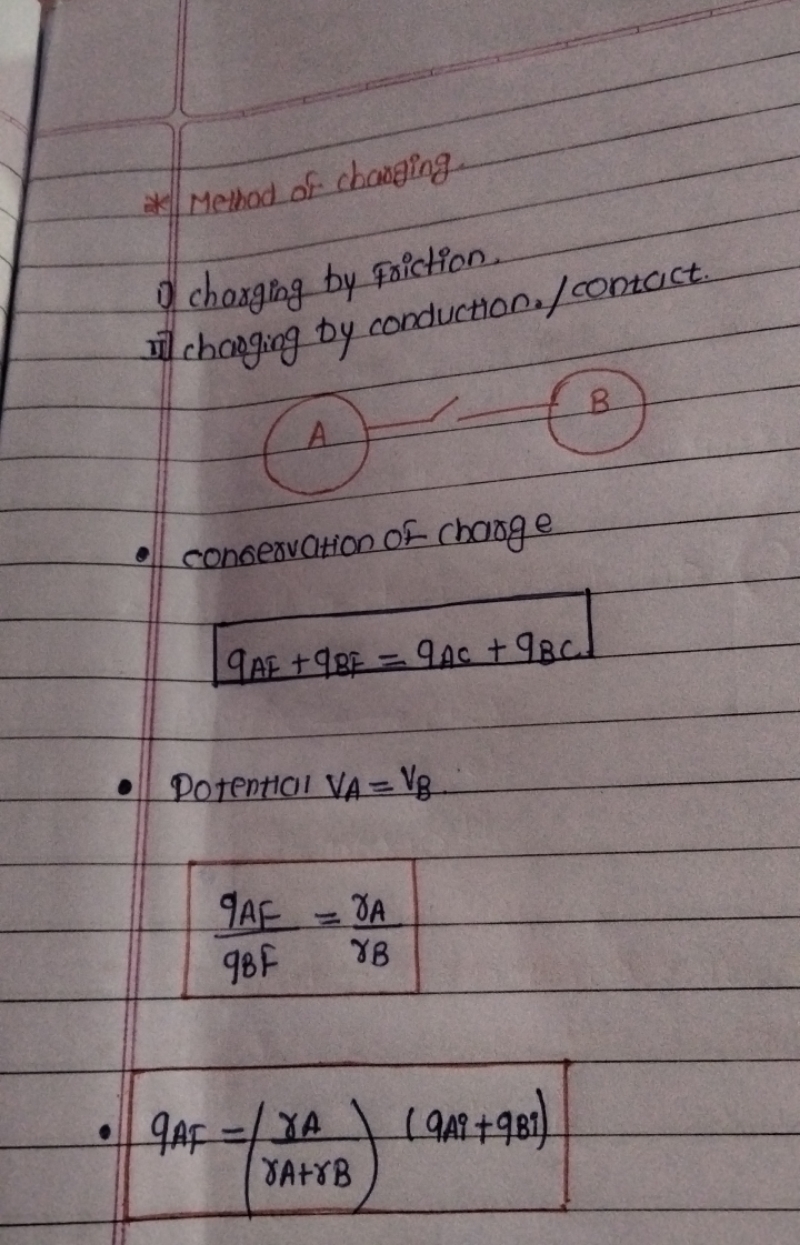 * Method of charging.
i) charging by Friction.
ii) charging by conduction. / contact.
A B
• conservation of charge
qAF + qBF = qAC + qBC
• Potential VA = VB.
qAF / qBF = rA / rB
• qAF = (rA / rA+rB) (qAi + qBi)